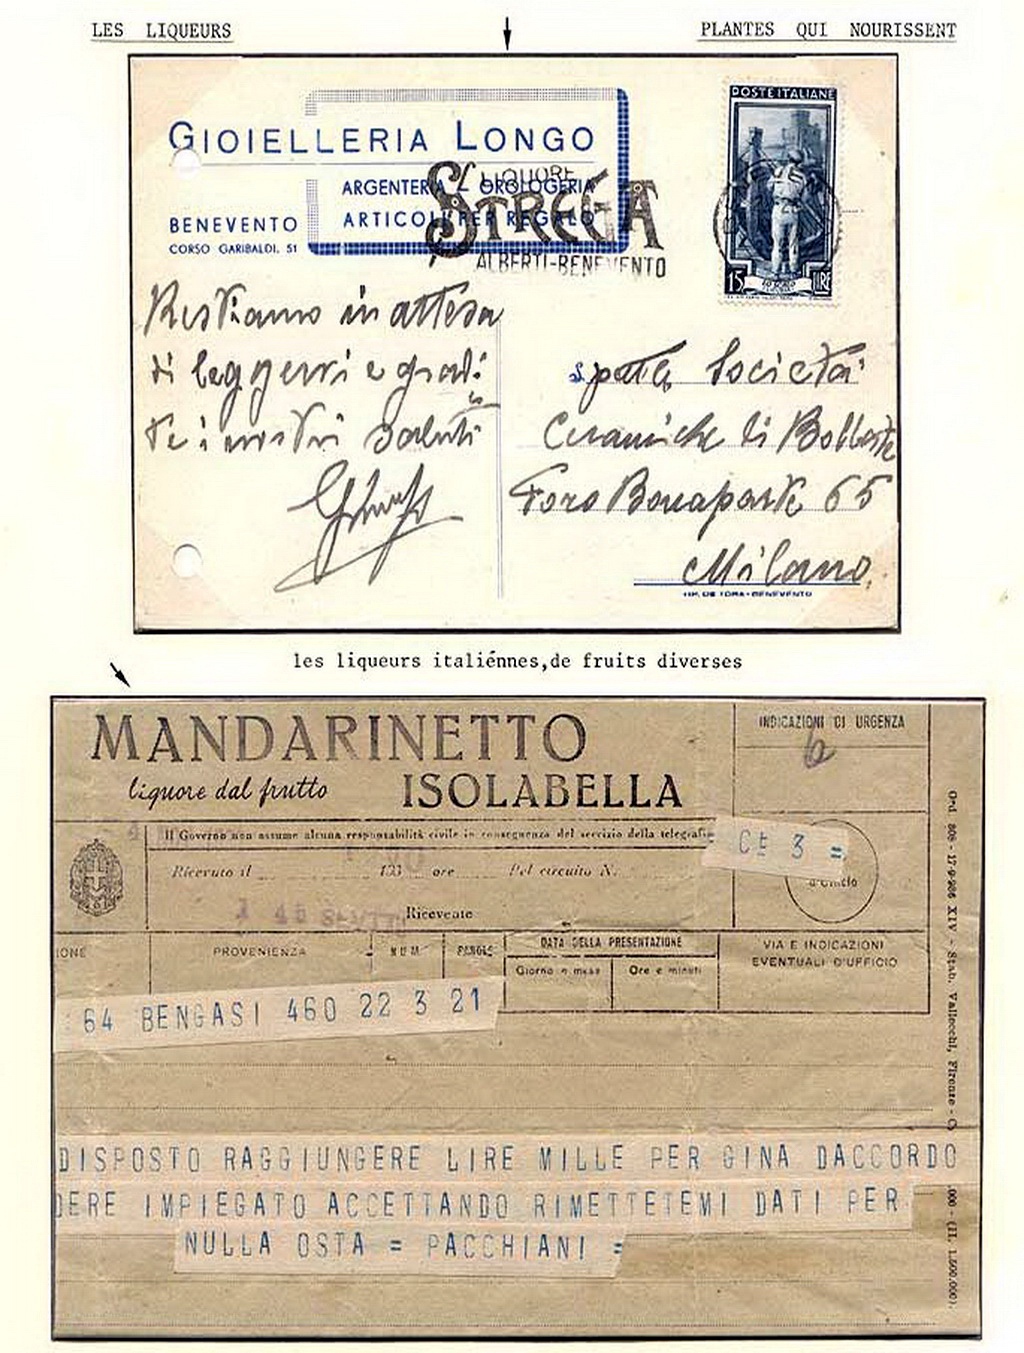 LES LIQUEURS
PLANTES QUI NOURISSENT
GIOIELLERIA LONGO
ARGENTERIA - OROLOGERIA
ARTICOLI PER REGALO
BENEVENTO
CORSO GARIBALDI, 51
LIQUORE
STREGA
ALBERTI-BENEVENTO
POSTE ITALIANE
15 LIRE
Restiamo in attesa
di leggervi e gradi
te i nostri saluti
Spett. Società
Ceramiche di
Foro Bonaparte 65
Milano
TIP. DE TOMA - BENEVENTO
les liqueurs italiénnes,de fruits diverses
MANDARINETTO
liquore dal frutto ISOLABELLA
INDICAZIONI DI URGENZA
Il Governo non assume alcuna responsabilità civile in conseguenza del servizio della telegrafia
Ct 3 =
Ricevuto il 193 ore Pel circuito N.
d'Ufficio
Ricevente
IONE
PROVENIENZA
NUM
PAROLE
DATA DELLA PRESENTAZIONE
Giorno e mese
Ore e minuti
VIA E INDICAZIONI
EVENTUALI D'UFFICIO
64 BENGASI 460 22 3 21
DISPOSTO RAGGIUNGERE LIRE MILLE PER GINA DACCORDO
DERE IMPIEGATO ACCETTANDO RIMETTETEMI DATI PER
NULLA OSTA = PACCHIANI =
Ord. 808 - 17-9-936 XIV - Stab. Vallecchi, Firenze - C
.000 - (II. 1.500.000).